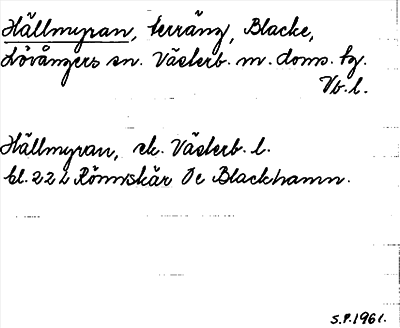 Hällmyran, terräng, Blacke,
Lövångers sn. Västerb. m. doms. fg.
Vb. l.
Hällmyran, ek. Västerb. l.
bl. 22 L Rönnskär Oe Blackhamn.
S.P. 1961.